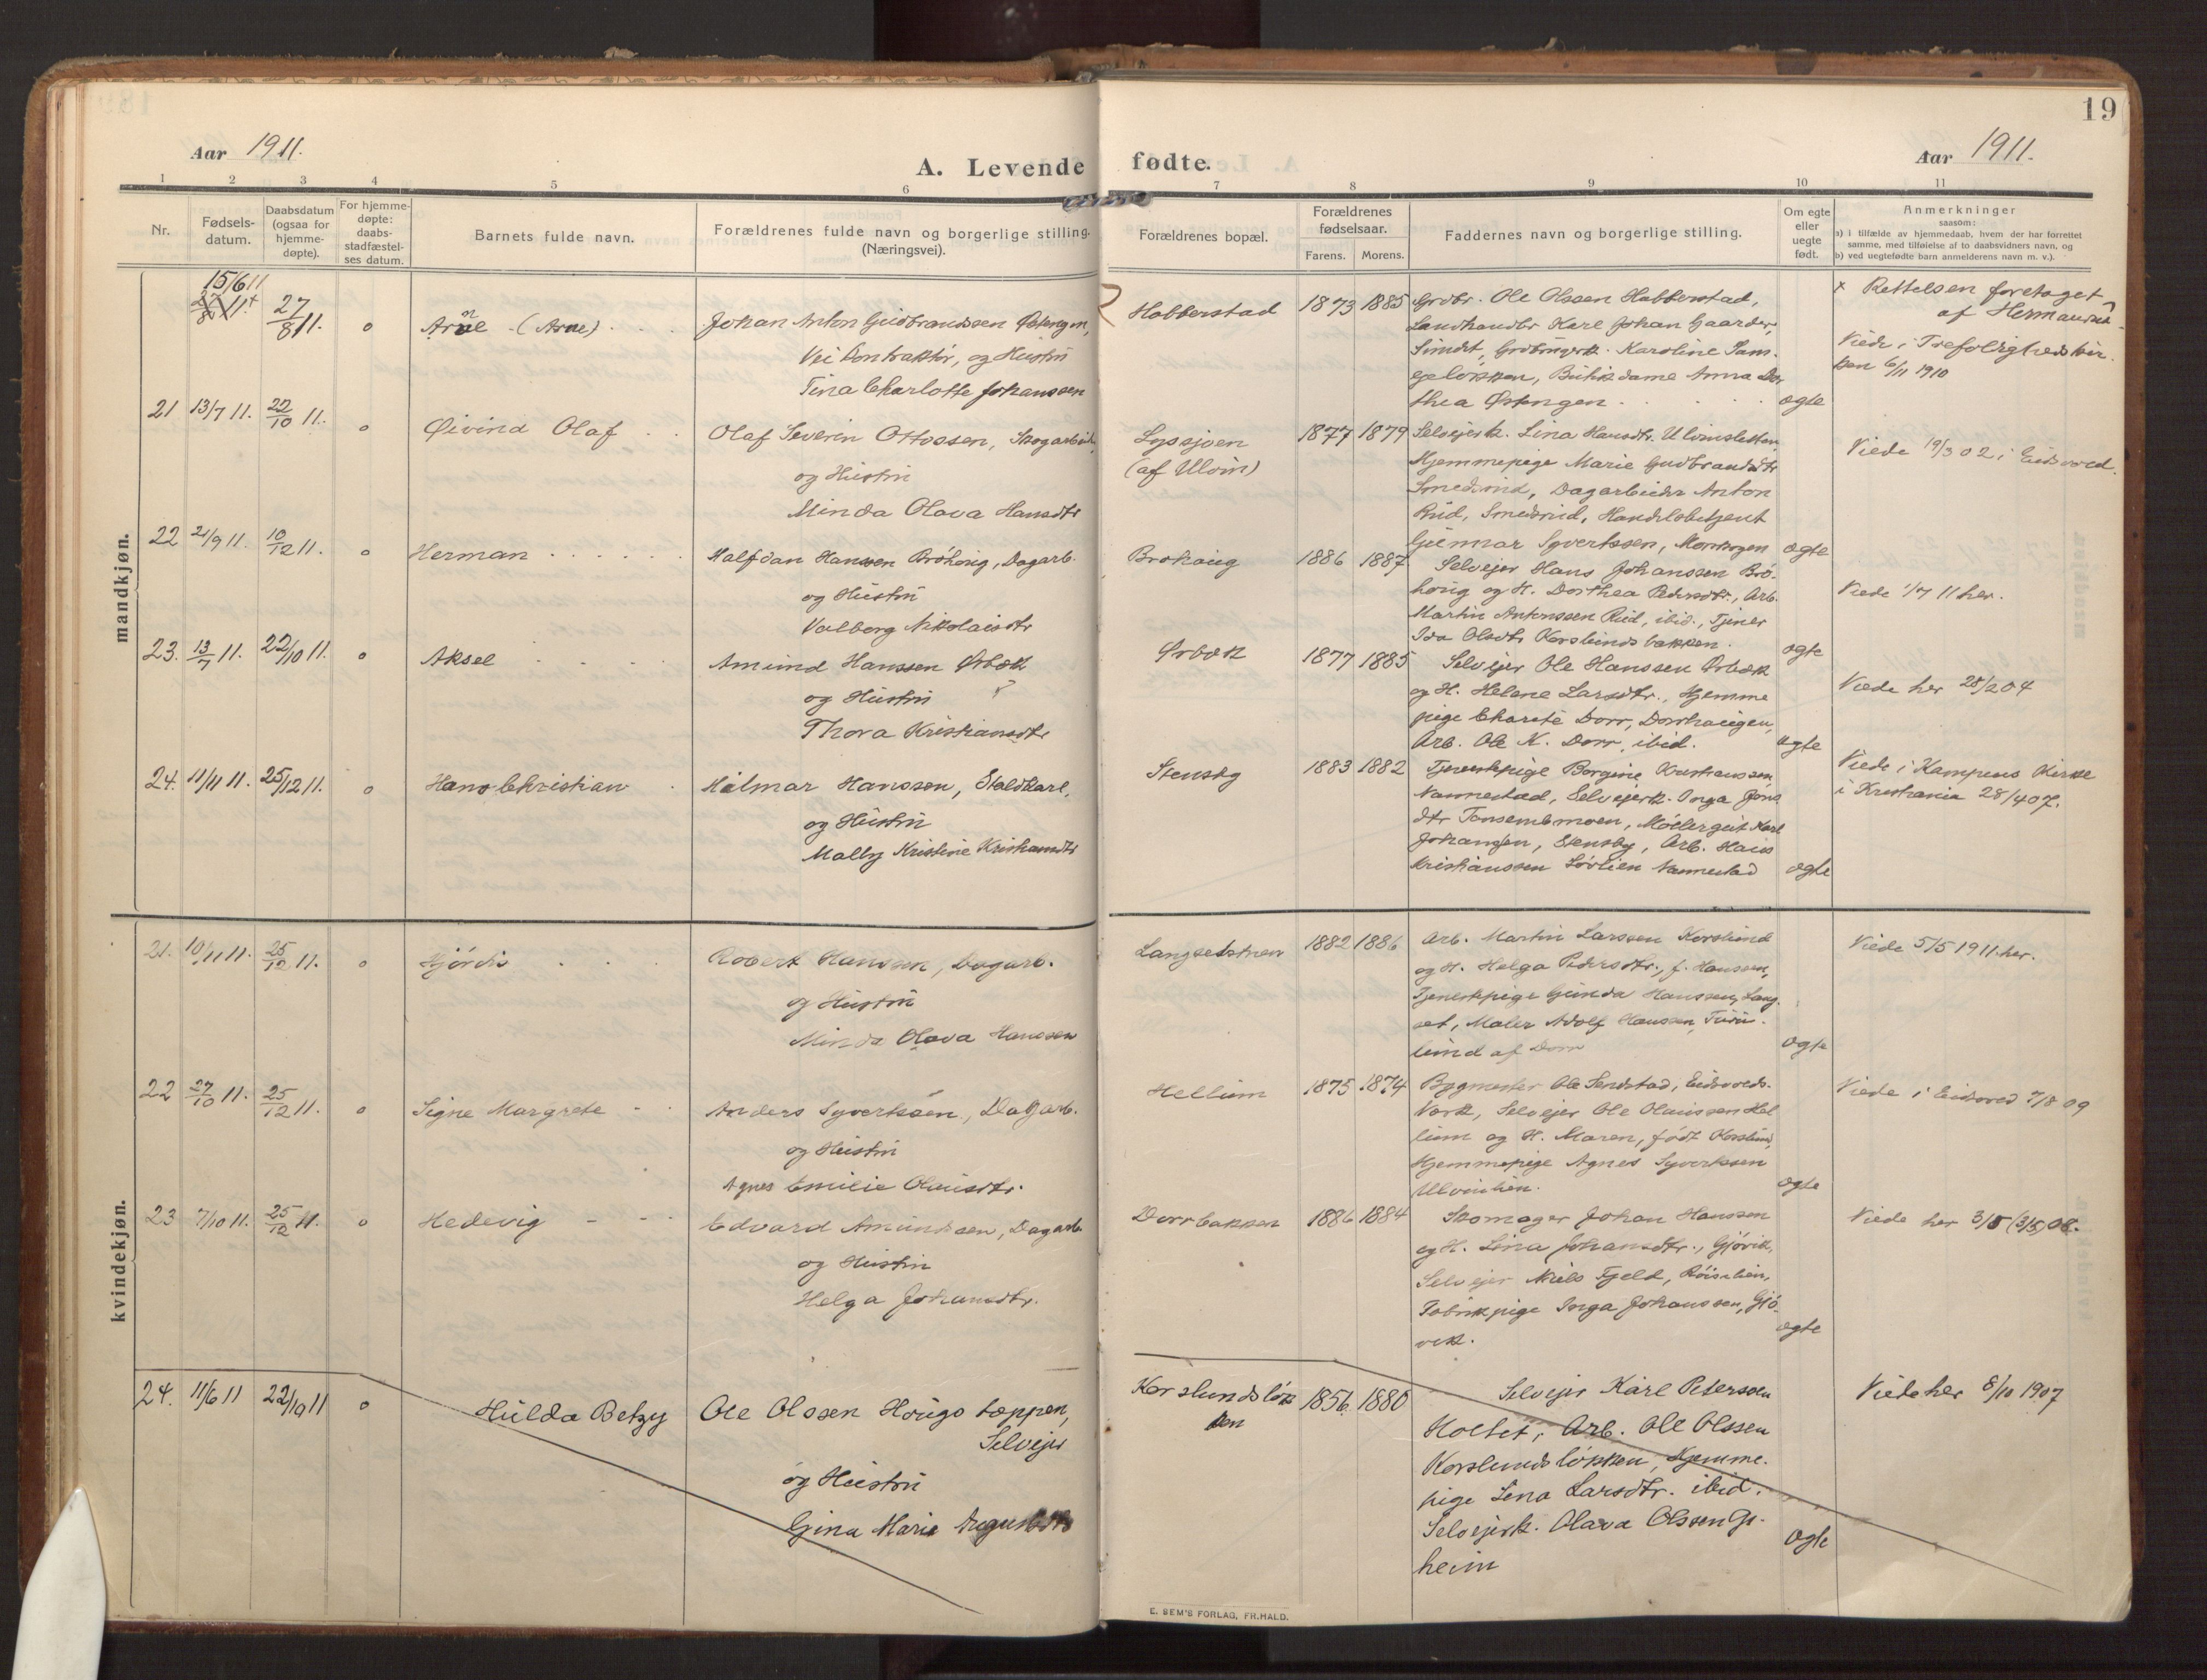 19
Aar 1911.
A. Levende fødte.
Aar 1911.
1 2 3 4 5 6 7 8 9 10 11
Nr.
Fødsels-
datum.
Daabsdatum
(ogsaa for
hjemme-
døpte).
For hjemme-
døpte:
daabs-
stadfæstel-
ses datum.
Barnets fulde navn.
Forældrenes fulde navn og borgerlige stilling.
(Næringsvei).
Forældrenes bopæl.
Forældrenes
fødselsaar.
Farens. Morens.
Faddernes navn og borgerlige stilling.
Om egte
eller
uegte
født.
Anmerkninger
saasom:
a) i tilfælde av hjemmedaab, hvem der har forrettet
samme, med tilføielse af to daabsvidners navn, og
b) ved uegtefødte barn anmelderens navn m. v.).
mandkjøn.
15/6 11
27/8 11. o (Arne)
Johan Anton Gudbrandssen
Vei Kontraktör, og Hustru
Tina Charlotte Johanssen
Habberstad 1873 1885
Grdbr. Ole Olssen Habberstad,
Landhandlr Karl Johan Gaarder,
Sundet, Karoline
Anna Do-
thea Østengen
ægte
x Rettelsen foretaget
af
Viede i Trefoldighedskir-
ken 6/11 1910
21 13/7 11. 22/10 11. o Øivind Olaf
Olaf Severin Ottossen, Skogarbeid.
og Hustru
Minda Olava Hansdtr
(af Ulvin)
1877 1879
Selvejerk. Lina Hansdtr.
Hjemmepige Marie Gudbrandsdtr
Smedsrud, Dagarbeider Anton
Rud, Smedsrud, Handelsbetjent
Gunnar Syvertssen,
ægte
Viede 19/3 02 i Eidsvold.
22 21/9 11. 10/12 11. o Herman
Halfdan Hanssen Bröhaug, Dagarb.
og Hustru
Valborg Nikolaisdtr
Brohaug 1886 1887
Selvejer Hans Johanssen Brö-
haug og H. Dorthea Pedersdtr., Arb.
Martin Antonssen Rud, ibid., Tjener
Ida Olsdtr Korslundsbakken.
ægte
Viede 1/7 11 her.
23. 13/7 11. 22/10 11. o Aksel
Amund Hanssen Ørbæk
og Hustru
Thora Kristiansdtr
Ørbæk 1877 1885
Selvejer Ole Hanssen Ørbæk
og H. Helene Larsdtr., Hjemme
pige Charite Dorr, Dorrhaugen,
Arb. Ole K. Dorr, ibid.
ægte
Viede her 28/2 04
24. 11/11 11. 25/12 11. o Hans Christian
Hilmar Hanssen, Staldkarl,
og Hustru
Mally Kristine Kristiansdtr
Stensby 1883 1882
Tjenestepige Borgine Kristianssen
Nannestad, Selvejerk. Inga
dtr Karl
Johanssen, Stensby, Arb. Hans
Kristianssen Nannestad
ægte
Viede i Kampens Kirke
i Kristiania 28/4 07.
kvindekjøn.
21. 10/11 11. 25/12 11. o Hjördis
Robert Hanssen, Dagarb.
og Hustru
Minda Olava Hanssen
1882 1886
Arb. Martin Larssen Korslund
og H. Helga Pedersdtr., f. Hanssen,
Tjenestepige Gunda Hanssen, Lang-
set, Maler Adolf Hanssen,
lund af Dorr
ægte
Viede 5/5 1911 her.
22 27/10 11. 25/12 11. o Signe Margrete
Anders Syvertssen, Dagarb.
og Hustru
Agnes Emilie Olausdtr.
Hellum 1875 1874
Bygmester Ole Sendstad, Eidsvolds-
Værk, Selvejer Ole Olaussen Hel
lum og H. Maren, født Korslund,
Hjemmepige Agnes Syvertssen
ægte
Viede i Eidsvold 7/8 09
23 7/10 11. 25/12 11. o Hedevig
Edvard Amundssen, Dagarb.
og Hustru
Helga Johansdtr.
Dorrbakken 1886 1884
Skomager Johan Hanssen
og H. Lina Johansdtr., Gjövik,
Selvejer Niels Fjeld,
Fabrikpige Inga Johanssen, Gjö-
vik.
ægte
Viede her 3/5 (3/5) 08.
24. 11/6 11 22/10 11 o Hulda Betzy
Ole Olssen Haugstappen,
Selvejer
og Hustru
Gina Marie Augustdtr
Korslundsløk
ken
1856 1880
Selvejer Karl Peterssen
Holtet, Arb. Ole Olssen
Korslundsløkken, Hjemme-
pige Lena Larsdtr. ibid.
Selvejerk. Olava Olssen
heim
ægte
Viede her 8/10 1907
E. SEM'S FORLAG, FR.HALD.